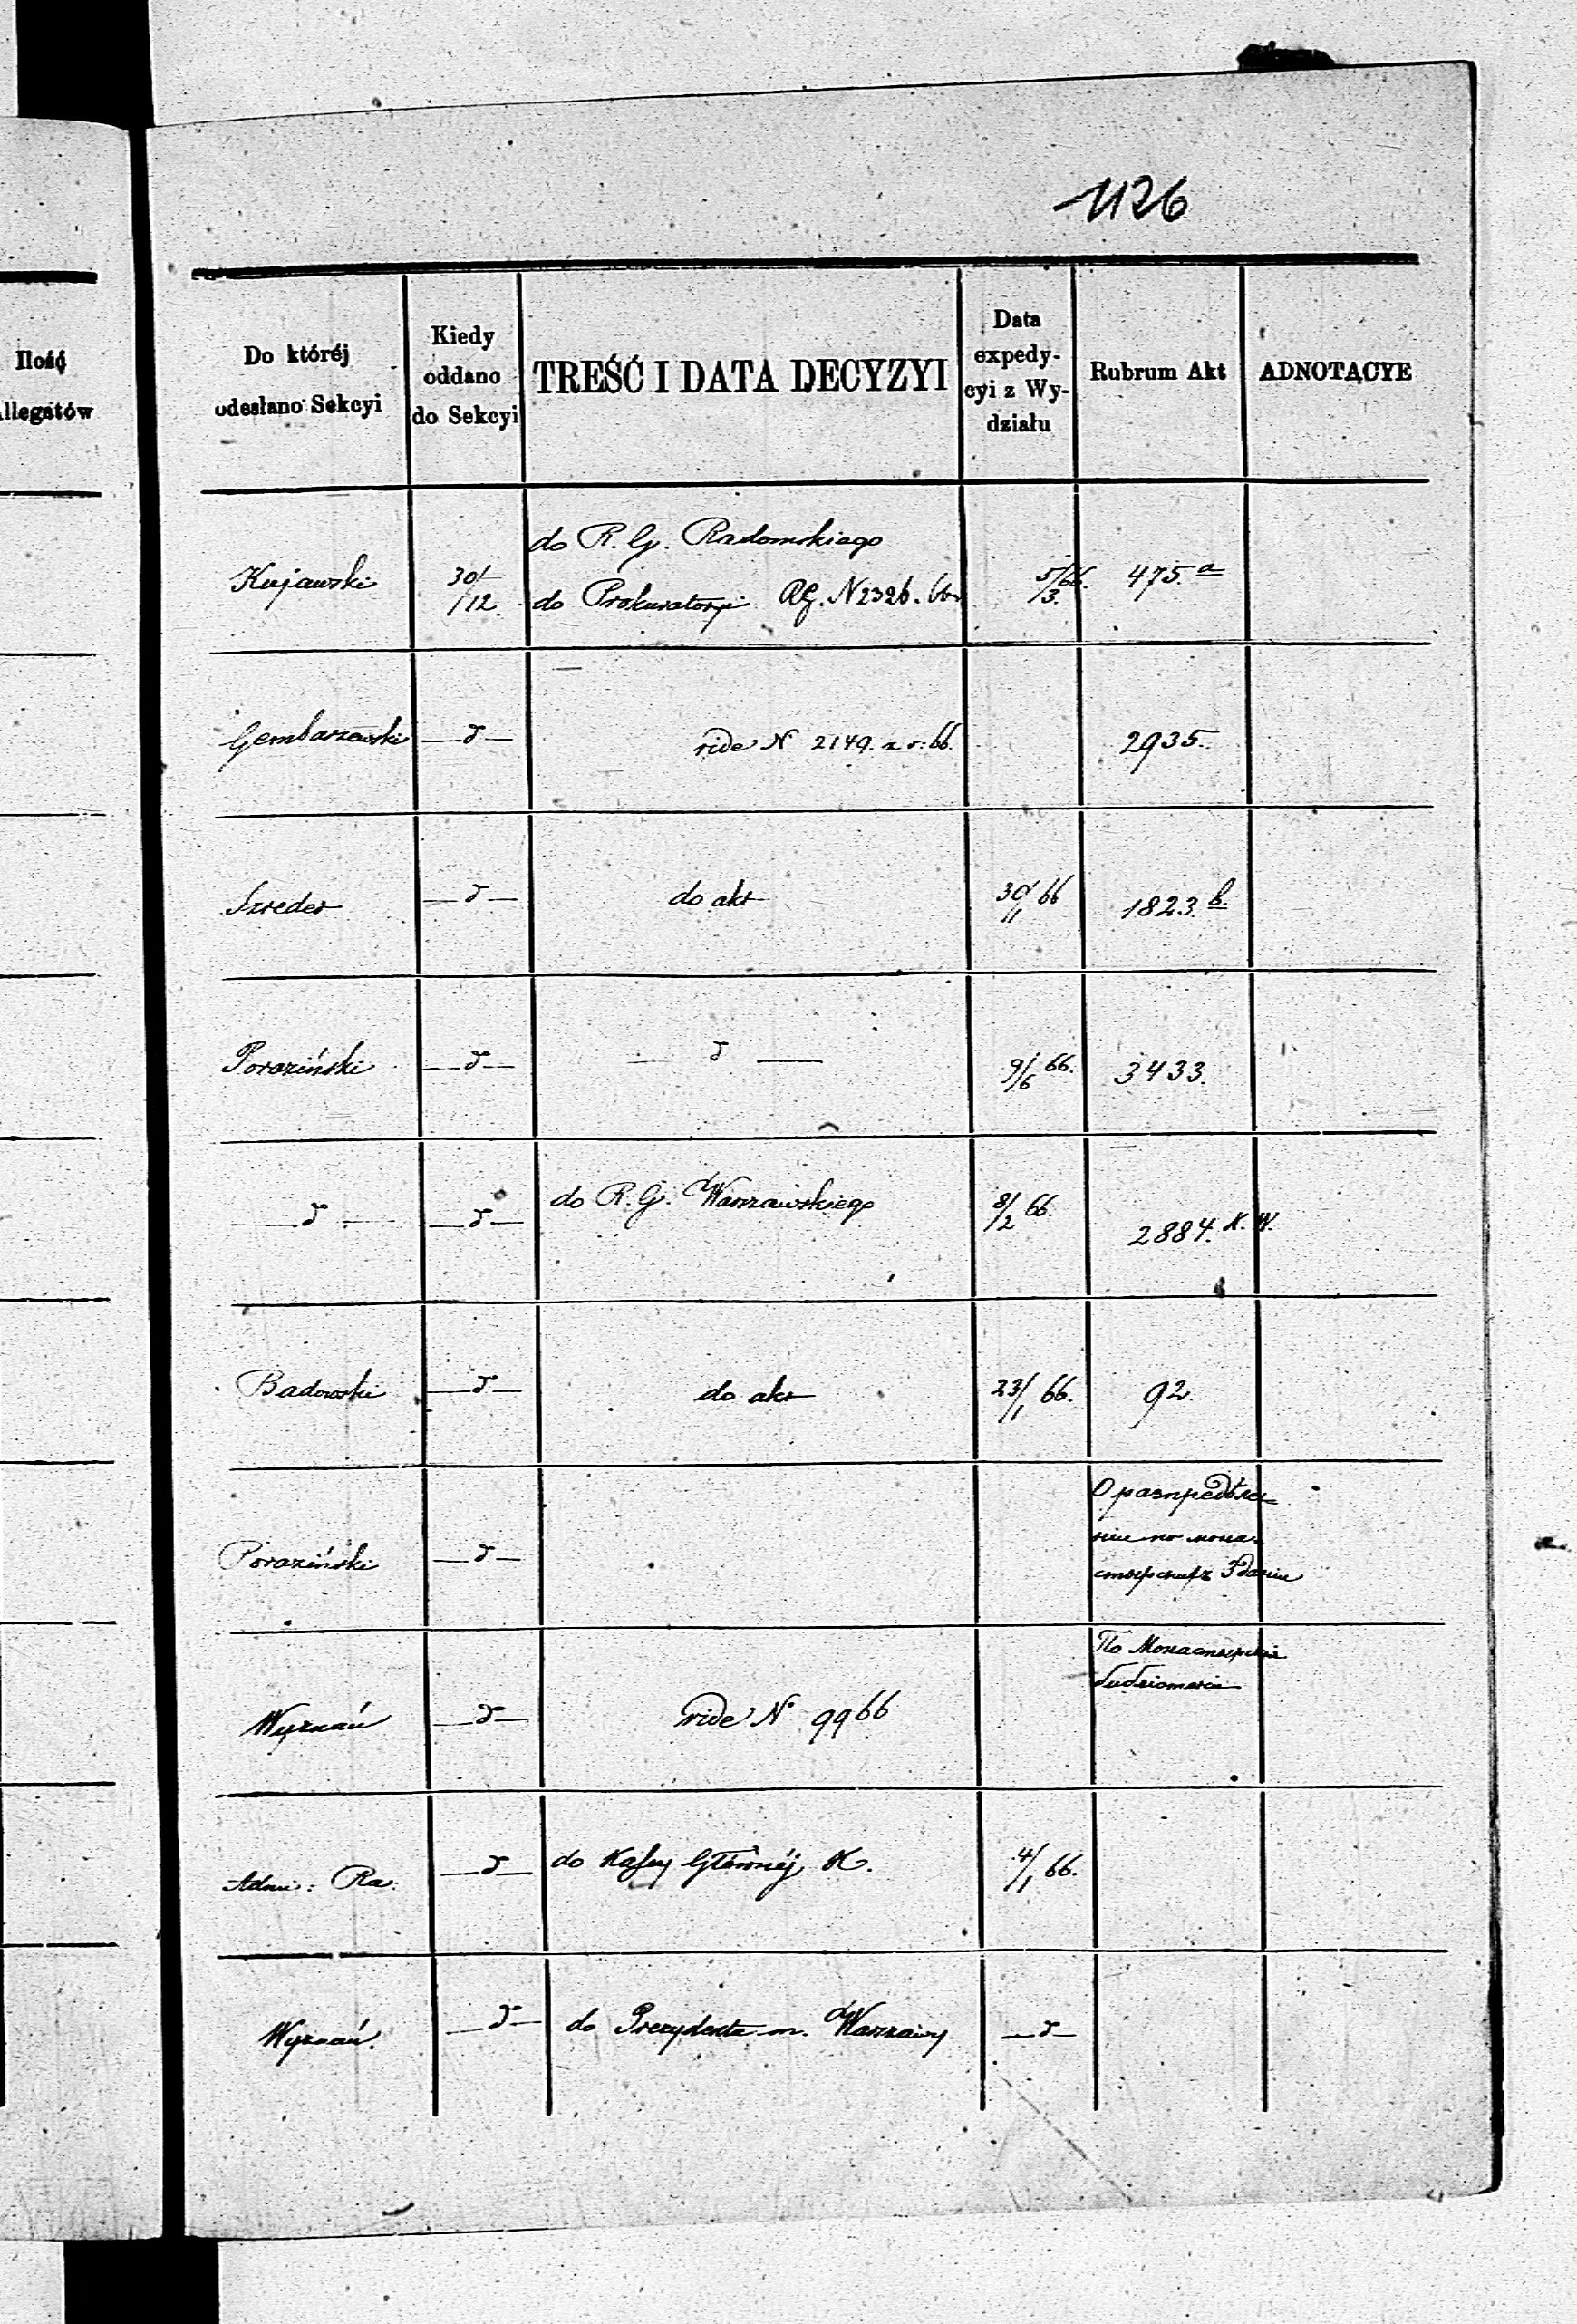 1126
Ilość
Allegatów
Do któréj
odesłano Sekcyi
Kiedy
oddano
do Sekcyi
TREŚĆ I DATA DECYZYI
Data
expedy-
cyi z Wy-
działu
Rubrum Akt
ADNOTACYE
do R. G. Radomskiego
Kujawski 30/12 do Prokuratoryi RG. N 2326. 66 5/3 66. 475.a
Gembarzewski —d— vide N 2149. z r: 66. 2935.
Szreder —d— do akt 30/11 66 1823 b.
Poraziński —d— — d — 9/6 66. 3433.
—d— —d— do R. G. Warszawskiego 8/2 66. 2884. K. W.
Badowski —d— do akt 23/1 66. 92.
О распредѣле-
нiи по мона-
Poraziński —d— стырскихъ Зданiи
По Монастырскiя
Wyznań —d— vide N 99 66
Adm: Ra: —d— do Kassy Głównéj K. 4/1 66.
Wyznań. —d— do Prezydenta m. Warszawy —d—